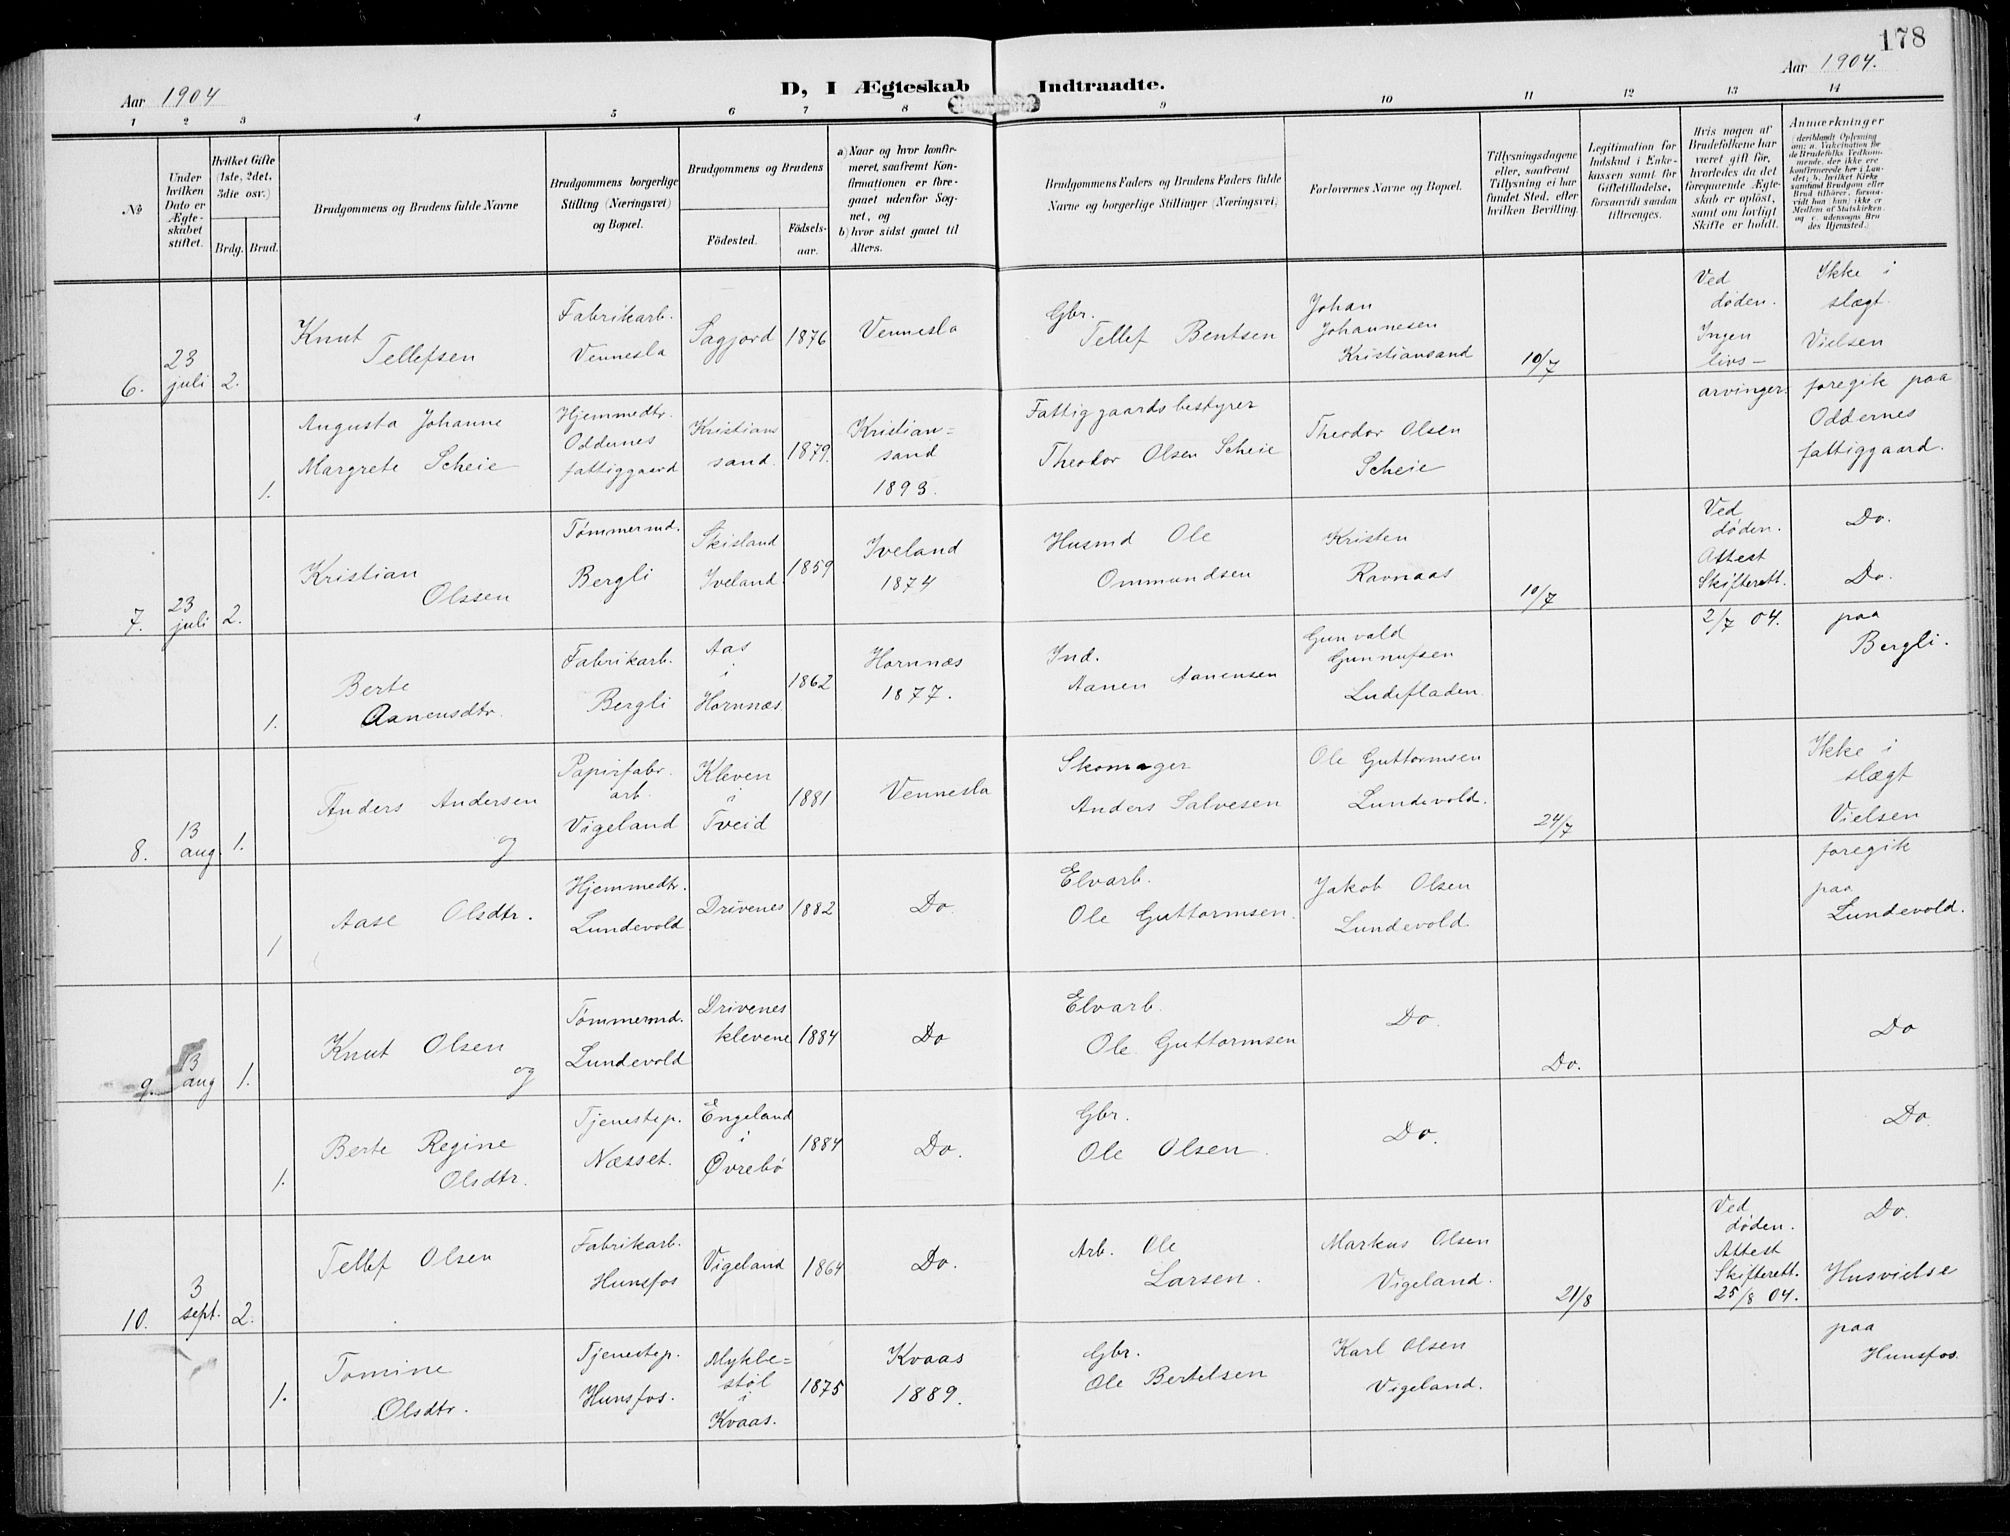 178
Aar 1904
D, I Ægteskab Indtraadte.
Aar 1904.
1 2 3 4 5 6 7 8 9 10 11 12 13 14
№
Under hvilken Dato er Ægteskabet stiftet.
Hvilket Gifte (1ste, 2det, 3die osv.)
Brdg. Brud.
Brudgommens og Brudens fulde Navne
Brudgommens borgerlige Stilling (Næringsvei) og Bopæl.
Brudgommens og Brudens
Födested.
Födselsaar.
a) Naar og hvor konfirmeret, saafremt Konfirmationen er foregaaet udenfor Sognet, og
b) hvor sidst gaaet til Alters.
Brudgommens Faders og Brudens Faders fulde Navne og borgerlige Stillinger (Næringsvei)
Forlovernes Navne og Bopæl.
Tillysningsdagene eller, saafremt Tillysning ei har fundet Sted, efter hvilken Bevilling.
Legitimation for Indskud i Enkekassen samt for Giftetilladelse, forsaavidt saadan tiltrænges.
Hvis nogen af Brudefolkene har været gift för, hvorledes da det foregaaende Ægteskab er oplöst, samt om lovligt Skifte er holdt.
Anmærkninger
(deriblandt Oplysning om: a. Vakcination for de Brudefolks Vedkommende, der ikke ere konfirmerede her i Landet; b. hvilket Kirkesamfund Brudgom eller Brud tilhører, forsaavidt han (hun) ikke er Medlem af Statskirken, og c. udensogns Brudes Hjemsted.)
6. 23 juli 2.
Knut Tellefsen
Fabrikarb. Vennesla
Sagjord 1876
Vennesla
Gbr. Tellef Bentsen
Johan Johannesen Kristiansand
10/7
Ved døden. Ingen livsarvinger.
Ikke i slægt. Vielsen foregik paa Oddernes fattiggaard.
1.
Augusta Johanne Margrete Scheie
Hjemmedtr. Oddernes fattiggaard
Kristianssand. 1879.
Kristian=sand 1893.
Fattiggaardsbestyrer Theodor Olsen Scheie
Theodor Olsen Scheie
7. 23 juli 2.
Kristian Olssen
Tømmermd. Bergli
Skisland Iveland 1859
Iveland 1874
Husmd Ole Ommundsen
Kristen Ravnaas
10/7
Ved døden. Attest Skifterett. 2/7 04.
Do. Do. paa Bergli.
1.
Berte Aanensdtr.
Fabrikarb. Bergli
Aas i Hornnæs 1862
Hornnæs 1877.
Ind. Aanen Aanensen
Gunvald Gunnufsen Ludefladen.
8. 13 aug. 1.
Anders Andersen og
Papirfabr. arb. Vigeland
Kleven i Tveid 1881
Vennesla
Skomager Anders Salvesen
Ole Guttormsen Lundevold.
24/7
Ikke i slægt Vielsen foregik paa Lundevold.
1
Aase Olsdtr.
Hjemmedtr. Lundevold
Drivenes 1882
Do.
Elvarb. Ole Guttormsen.
Jakob Olsen Lundevold.
9. 13 aug 1.
Knut Olsen og
Tømmermd. Lundevold
Drivenes klevene 1884
Do
Elvarb. Ole Guttormsen
Do.
Do.
Do
1.
Berte Regine Olsdtr.
Tjenestep. Næsset.
Engeland i Øvrebö 1884
Do.
Gbr. Ole Olsen.
Do.
Do.
10. 3 sept. 2.
Tellef Olsen
Fabrikarb. Hunsfos
Vigeland 1864
Do.
Arb. Ole Larsen.
Markus Olsen Vigeland.
21/8
Ved døden. Attest Skifterett. 25/8 04.
Do. Husvielse paa Hunsfos.
1.
Tomine Olsdtr.
Tjenestep. Hunsfos.
Mykbe=støl i Kvaas. 1875
Kvaas 1889.
Gbr. Ole Bertelsen
Karl Olsen Vigeland.